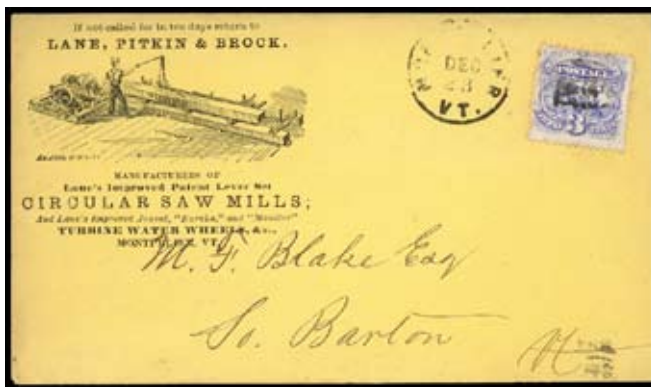 If not called for in ten days return to
LANE, PITKIN & BROCK.
MANUFACTURERS OF
Lane's Improved Patent Lever Set
CIRCULAR SAW MILLS;
And Lane's Improved Jonval, "Eureka," and "Monitor"
TURBINE WATER WHEELS, &c.,
MONTPELIER, VT.
DEC
VT.
POSTAGE
3
M. F. Blake Esq
So. Barton
Vt